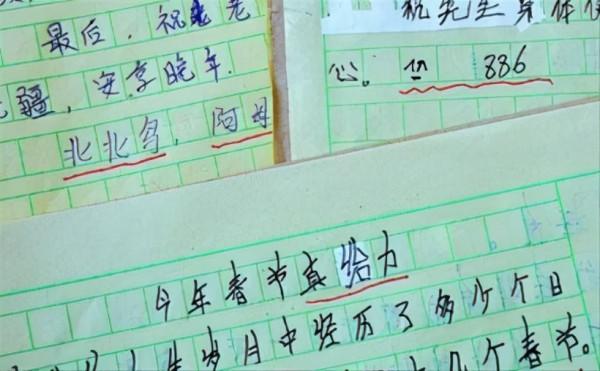 最后，祝老
疆，安享晚年.
北北鸟，阿
祝先生身体
心。 886
今年春节真给力
岁月中经历了多少个日
几个春节。